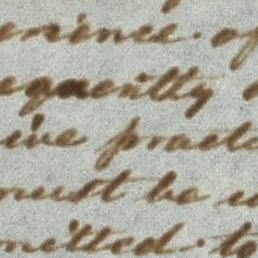 enience. of
equently
ive practi
must be u
mitted. to